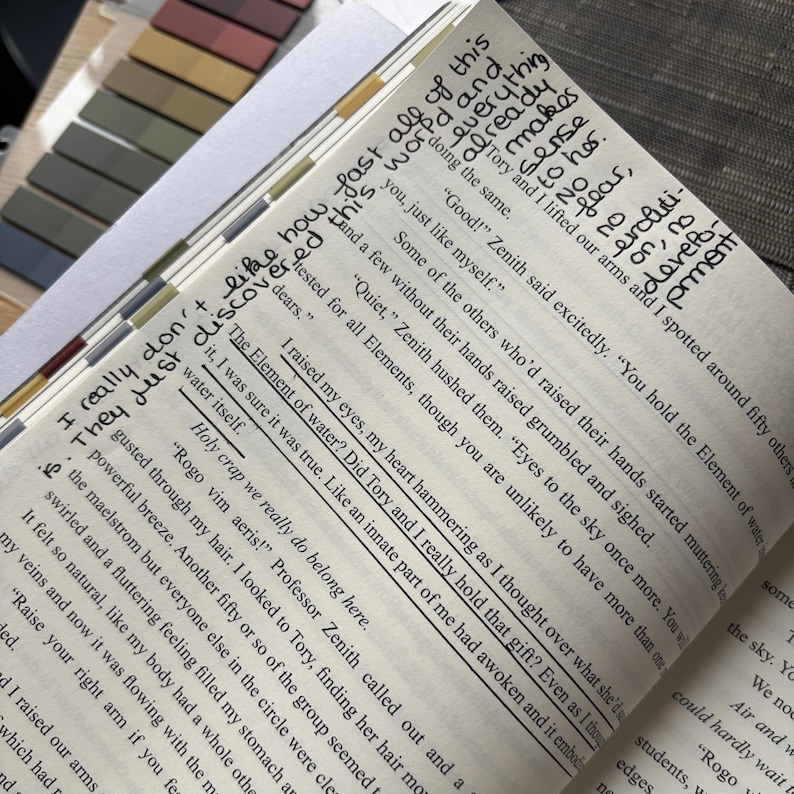 I really don't like how fast all of this
is. They just discovered this world and
everything
already
makes
sense
to her.
No fear,
no
evoluti-
on, no
develo-
pment!
Tory and I lifted our arms and I spotted around fifty others
doing the same.
“Good!” Zenith said excitedly. “You hold the Element of water
you, just like myself.”
Some of the others who’d raised their hands started muttering
and a few without their hands raised grumbled and sighed.
“Quiet,” Zenith hushed them. “Eyes to the sky once more. You will
tested for all Elements, though you are unlikely to have more than one
dears.”
I raised my eyes, my heart hammering as I thought over what she’d
The Element of water? Did Tory and I really hold that gift? Even as I
it, I was sure it was true. Like an innate part of me had awoken and it
water itself.
Holy crap we really do belong here.
“Rogo vim aeris!” Professor Zenith called out and a
gusted through my hair. I looked to Tory, finding her hair
powerful breeze. Another fifty or so of the group seemed
the maelstrom but everyone else in the circle were
swirled and a fluttering feeling filled my stomach
It felt so natural, like my body had a whole
my veins and now it was flowing with the
“Raise your right arm if you
I raised our arms
which had
the sky.
We
Air and
could hardly wait
“Rogo
students,
edges